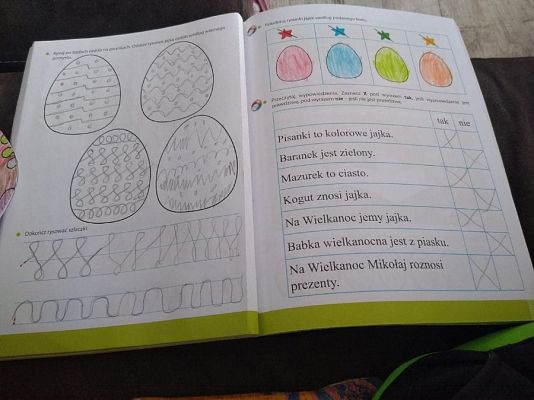 Rysuj po śladach wzorów na pisankach. Ostatni rysunek ozdób według własnego
pomysłu.
Dokończ rysować szlaczki.
Pokoloruj rysunki jajek według podanego kodu.
Przeczytaj wypowiedzenia. Zaznacz X pod wyrazem tak, jeśli wypowiedzenie jest
prawdziwe, pod wyrazem nie – jeśli nie jest prawdziwe.
tak nie
Pisanki to kolorowe jajka.
Baranek jest zielony.
Mazurek to ciasto.
Kogut znosi jajka.
Na Wielkanoc jemy jajka.
Babka wielkanocna jest z piasku.
Na Wielkanoc Mikołaj roznosi
prezenty.